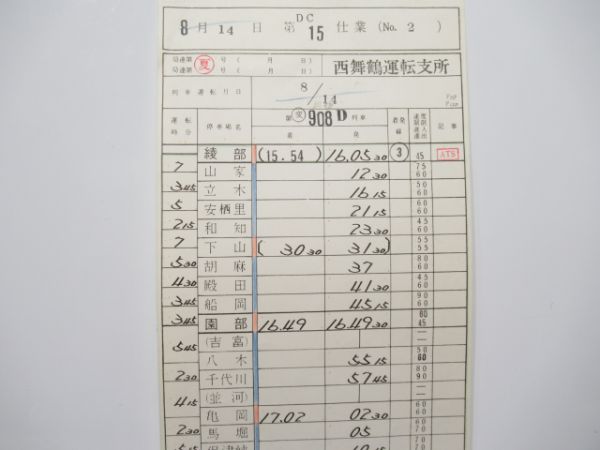 DC
8月14日 第15仕業(No. 2 )
局達第 夏 号( 月 日)
局達第 号( 月 日)
西舞鶴運転支所
列車運転月日 8/14
運転時分 停車場名 変 908D列車 着 発 着発線 記事
綾部 (15.54) 16.05 30 ③ 45 ATS
7 山家 12 30 75 60
3 45 立木 16 15 50 60
5 安栖里 21 15 60 60
2 15 和知 23 30 45 60
7 下山 ( 30 30 31 30) 55 55
5 30 胡麻 37 80 60
4 30 殿田 41 30 60 60
3 45 船岡 45 15 90 60
3 45 園部 16.49 16.49 30 60 45
(吉富) | ―
5 45 八木 55 15 50 60
2 30 千代川 57 45 80 90
(並河) | ―
4 15 亀岡 17.02 02 30 60 60
2 30 馬堀 05 70 70